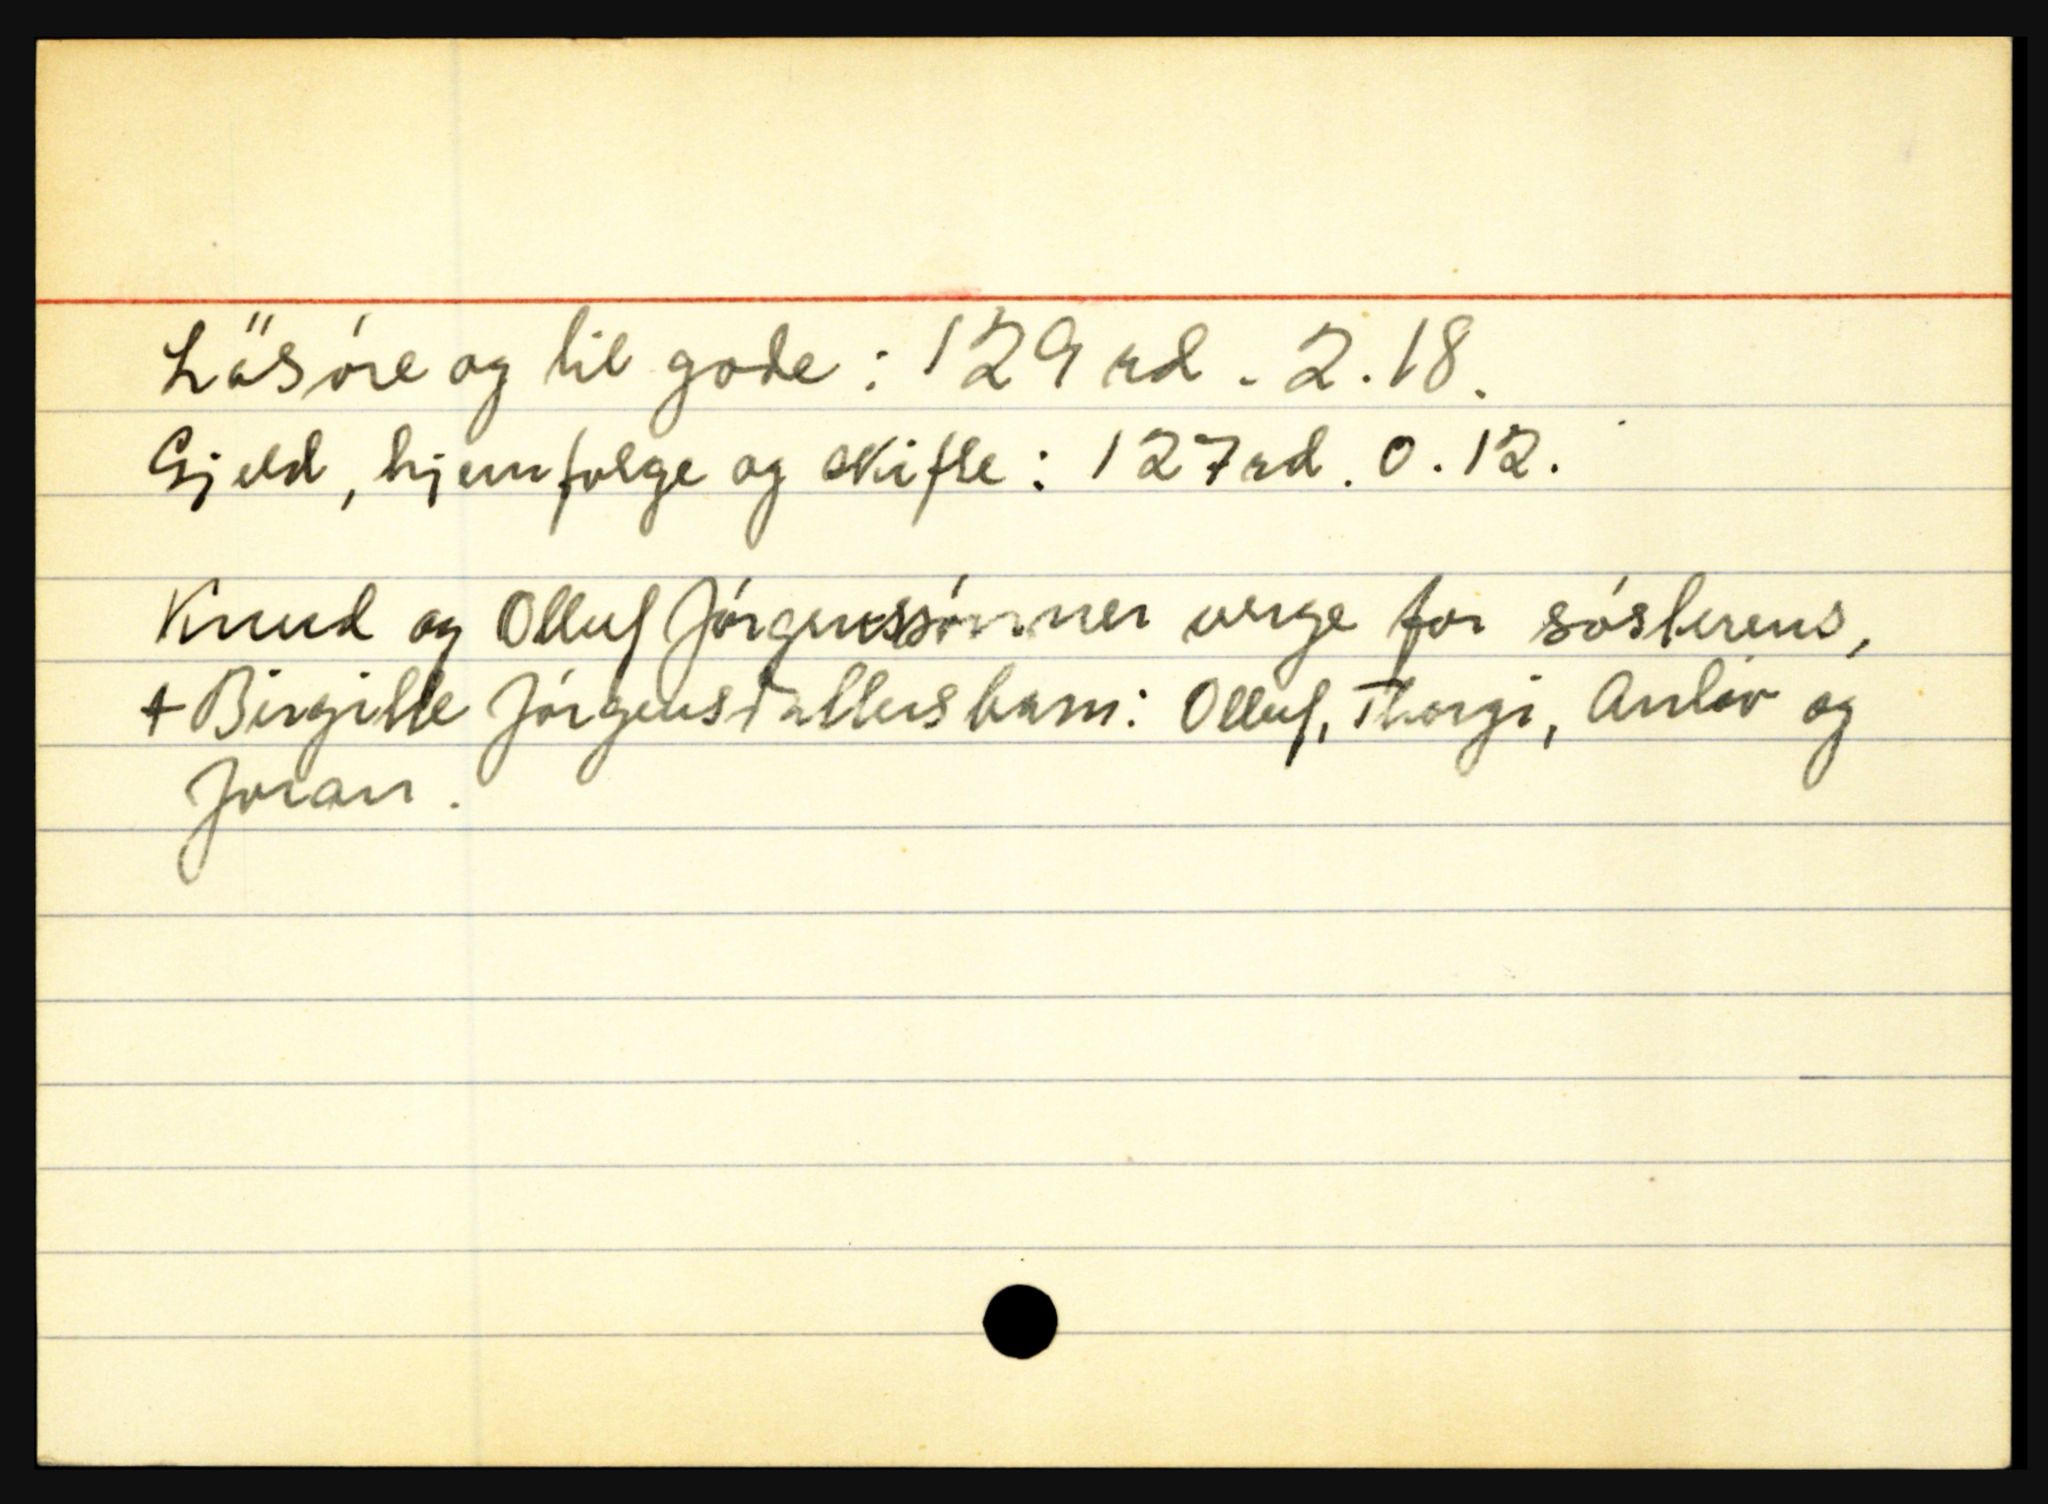 Läsóre og til gode: 129 rd. 2.18.
Gjeld, hjemfolge og skifte: 127 rd. 0.12.
Knud og Olluf Jórgenssónner verge for sósterens,
+ Birgitte Jórgensdatters barn: Olluf, Thorgi, Anlóv og
Joran.